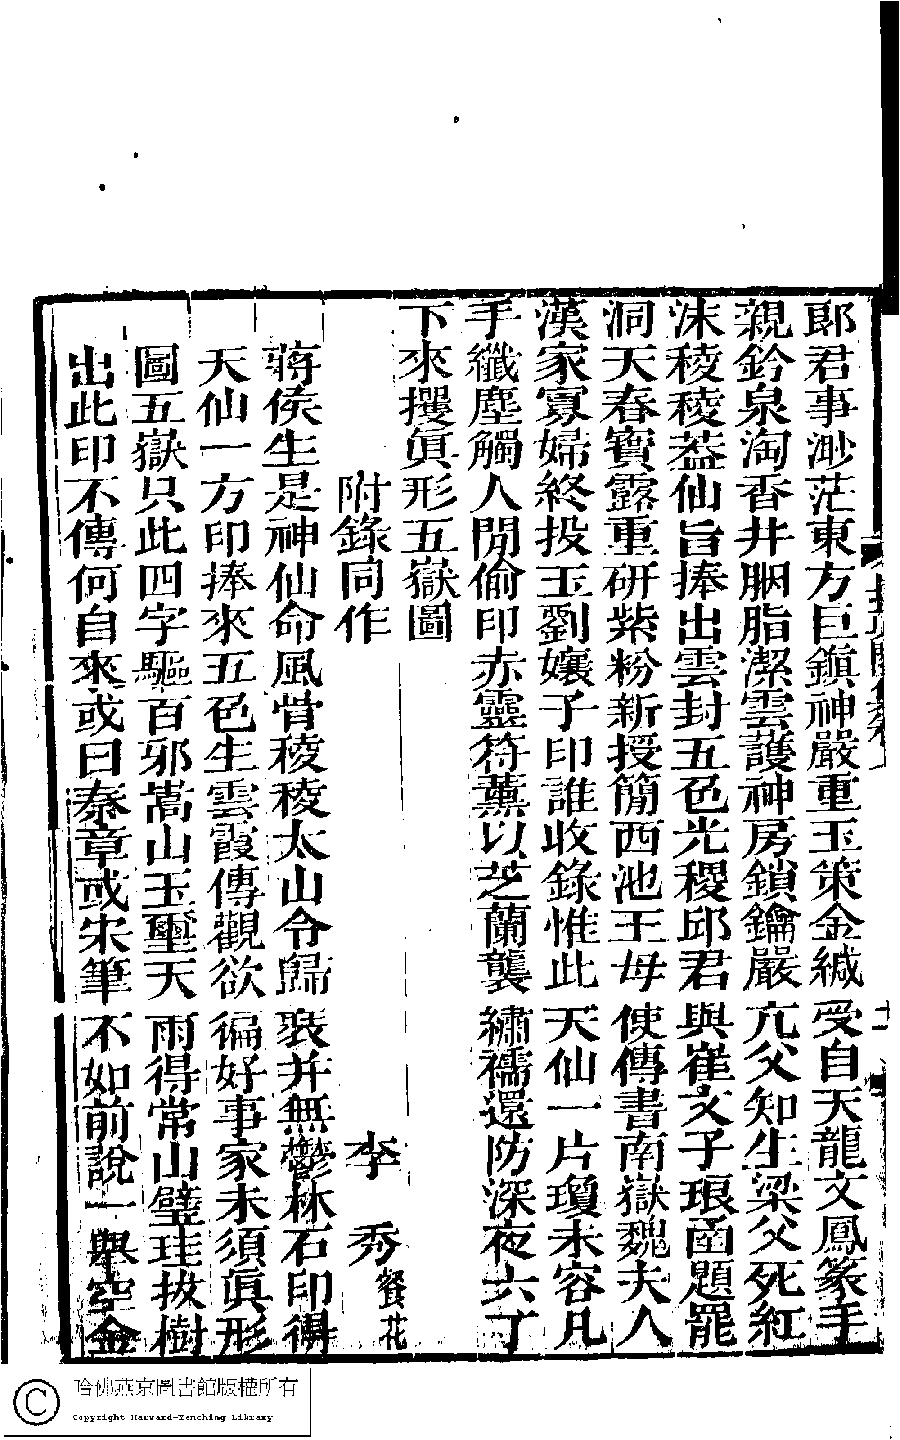 郎君事渺茫東方巨鎭神嚴重玉策金緘受自天龍文鳳篆手
親鈐泉淘香井胭脂潔雲護神房鎖鑰嚴亢父知生梁父死紅
沫稜稜葢仙旨捧出雲封五色光稷邱君與崔文子琅函題罷
洞天春寶露重硏紫粉新授簡西池王母使傳書南嶽魏夫人
漢家寡婦終投玉劉孃子印誰收錄惟此天仙一片瓊未容凡
手纖塵觸人閒偷印赤靈符薰以芝蘭襲繡襦還防深夜六丁
下來攫眞形五嶽圖
附錄同作
李秀餐花
蔣侯生是神仙命風骨稜稜太山令歸裝并無鬱林石印得
天仙一方印捧來五色生雲霞傳觀欲徧好事家未須眞形
圖五嶽只此四字驅百邪嵩山玉璽天雨得常山璧珪拔樹
出此印不傳何自來或曰秦章或宋筆不如前說一舉空金
哈佛燕京圖書館版權所有
Copyright Harvard-Yenching Library